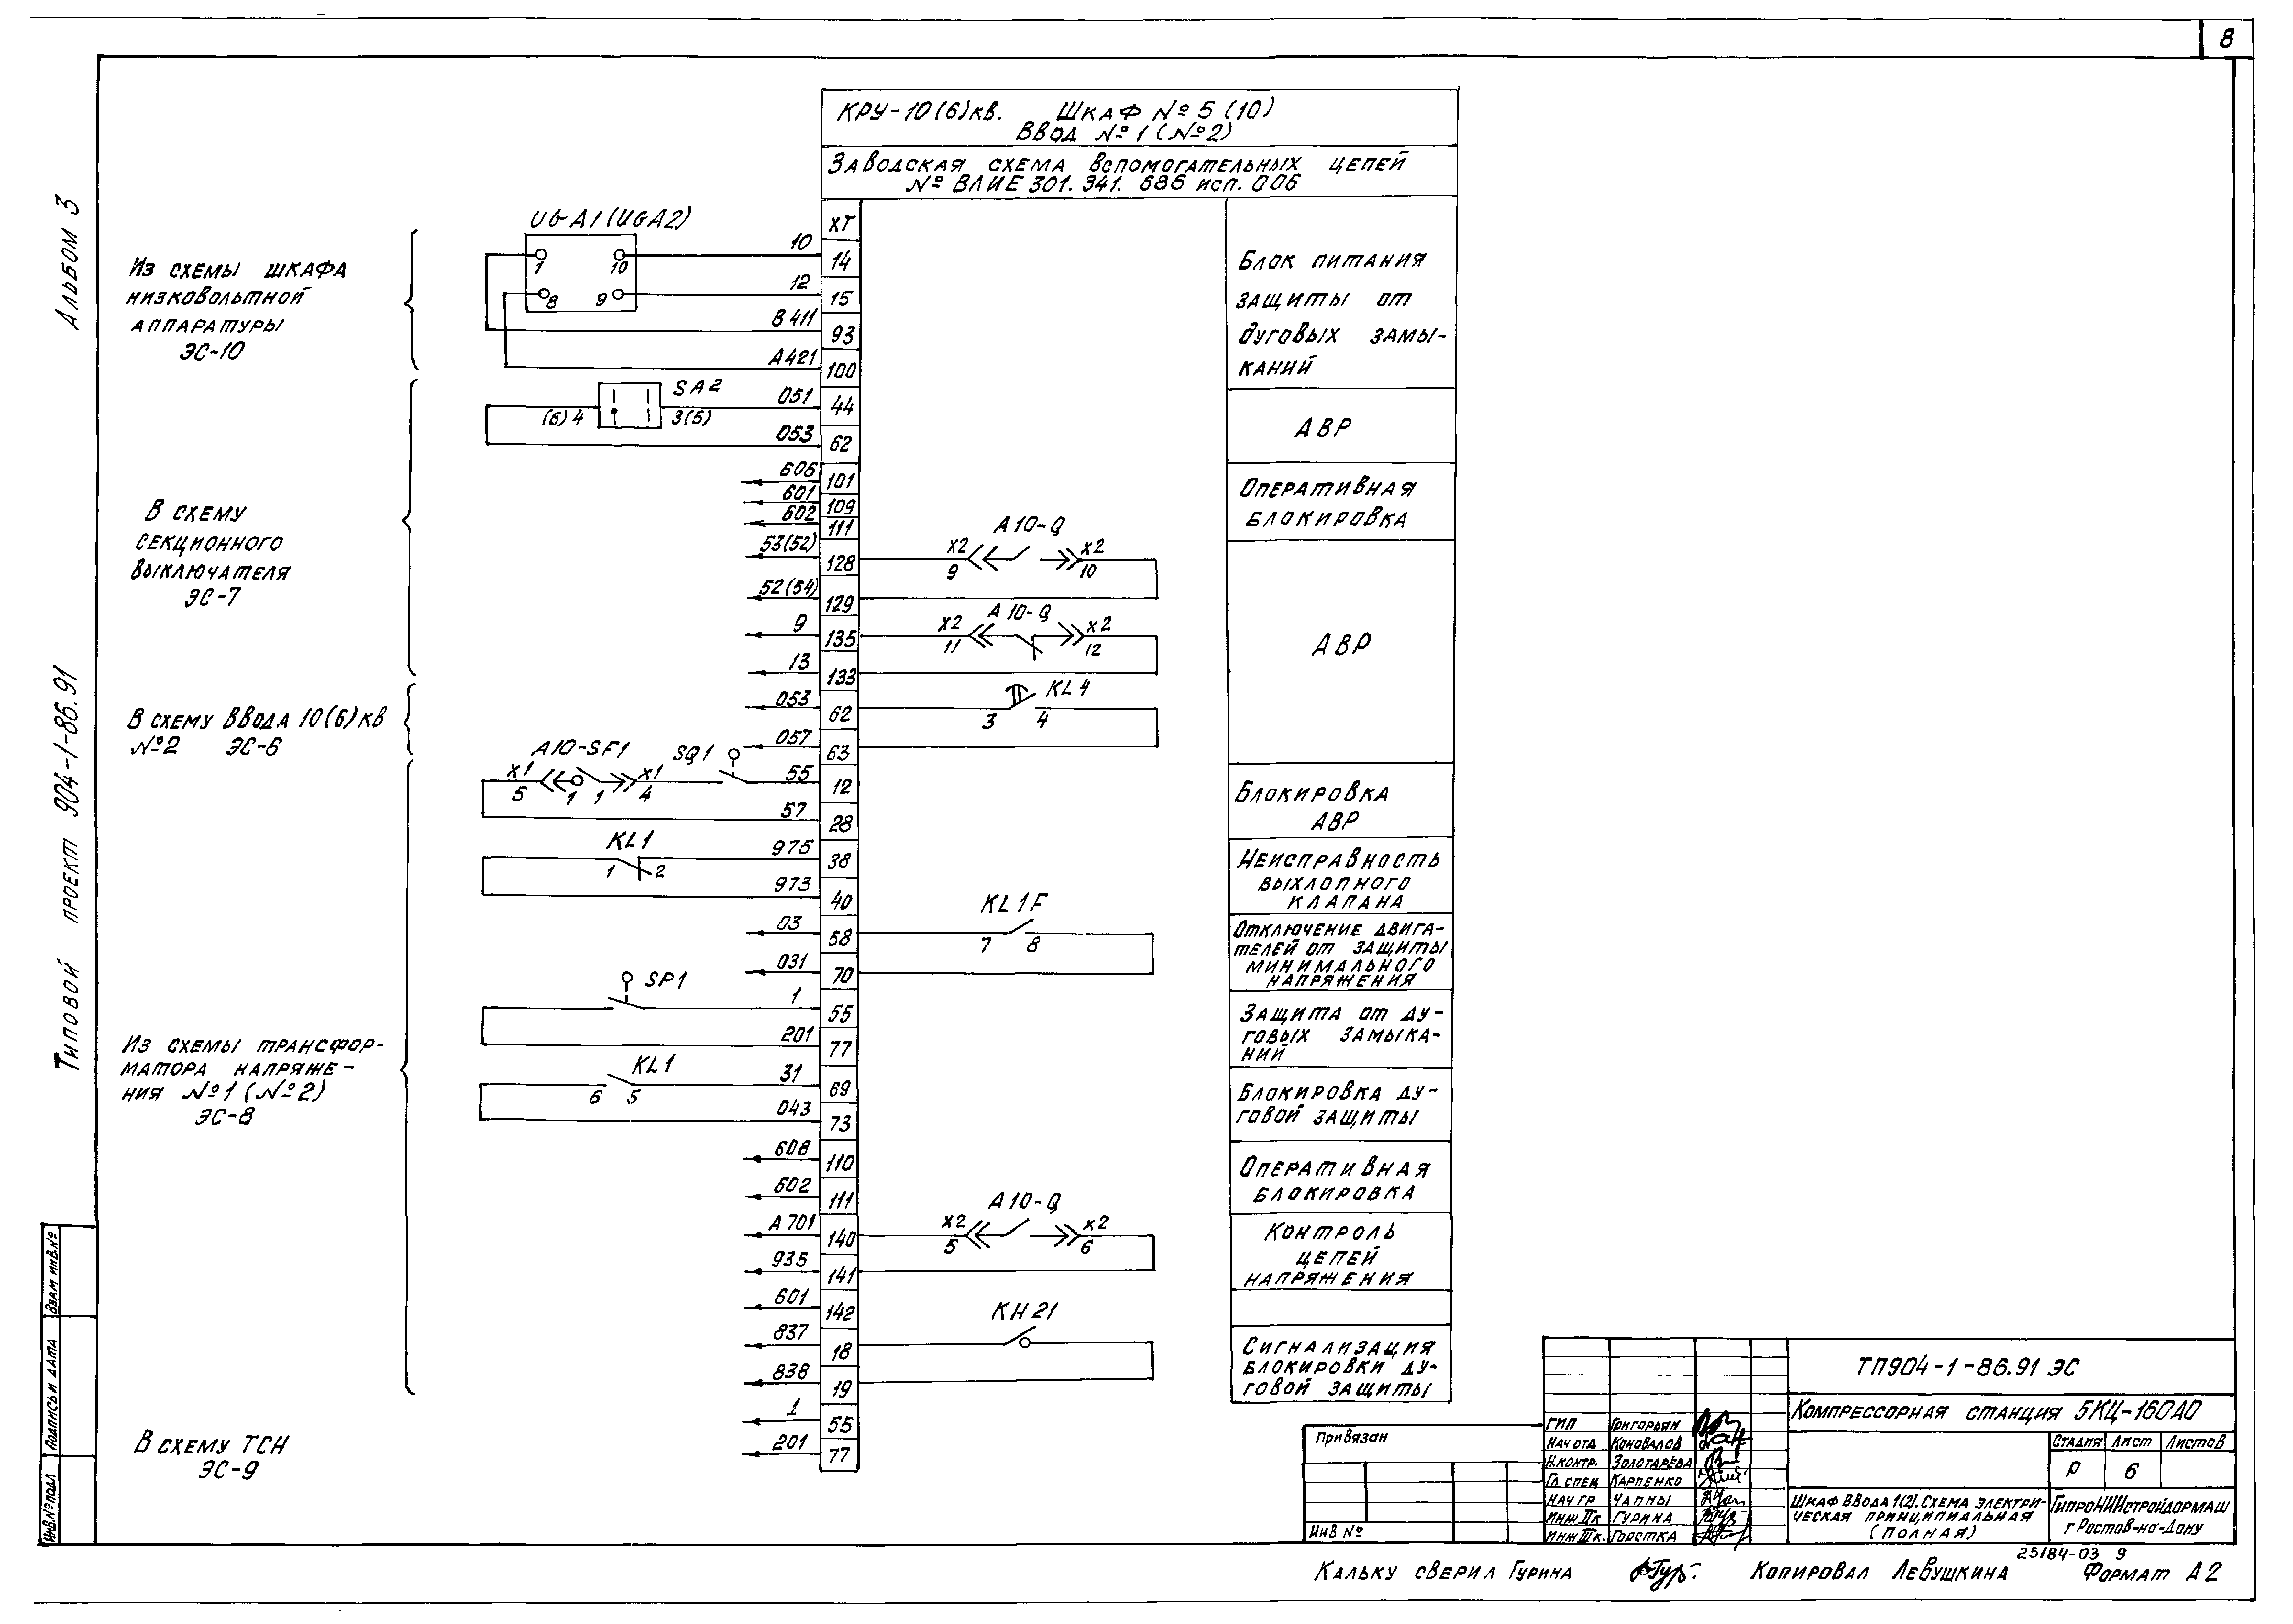 8
Альбом 3
Типовой проект 904-1-86.91
КРУ-10(6)кв. Шкаф №5 (10)
Ввод №1 (№2)
Заводская схема вспомогательных цепей
№ ВЛИЕ 301. 341. 686 исп. 006
XT
UGA1(UGA2)
1
10
8
9
Из схемы шкафа
низковольтной
аппаратуры
ЭС-10
10
14
12
15
В411
93
А421
100
Блок питания
защиты от
дуговых замы-
каний
SA2
(6)4
3(5)
051
44
053
62
АВР
В схему
секционного
выключателя
ЭС-7
606
101
601
109
602
111
Оперативная
блокировка
53(52)
128
X2
9
А10-Q
X2
10
52(54)
129
9
135
X2
11
А10-Q
X2
12
13
133
АВР
В схему Ввода 10(6)кв
№2 ЭС-6
053
62
3
4
KL4
057
63
X1
5
А10-SF1
1
1
X1
4
SQ1
55
12
57
28
Блокировка
АВР
KL1
1
2
975
38
973
40
Неисправность
выхлопного
клапана
03
58
KL1F
7
8
031
70
Отключение двига-
телей от защиты
минимального
напряжения
Из схемы трансфор-
матора напряже-
ния №1 (№2)
ЭС-8
SP1
1
55
201
77
Защита от ду-
говых замыка-
ний
KL1
6
5
31
69
043
73
Блокировка ду-
говой защиты
608
110
602
111
Оперативная
блокировка
А701
140
X2
5
А10-Q
X2
6
935
141
Контроль
цепей
напряжения
601
142
837
18
KH21
838
19
Сигнализация
блокировки ду-
говой защиты
В схему ТСН
ЭС-9
1
55
201
77
Взам инв.№
Подпись и дата
Инв.№ подл
Привязан
Инв №
ТП904-1-86.91 ЭС
Компрессорная станция 5КЦ-160А0
ГИП Григорьян
Нач отд Коновалов
Н.контр. Золотарева
Гл спец Карпенко
Нач гр Чапны
Инж IIк Гурина
Инж IIIк. Горстка
Стадия Лист Листов
Р 6
Шкаф Ввода 1(2). Схема электри-
ческая принципиальная
(полная)
ГипроНИИстройдормаш
г Ростов-на-Дону
25184-03 9
Кальку сверил Гурина
Копировал Левушкина
Формат А2